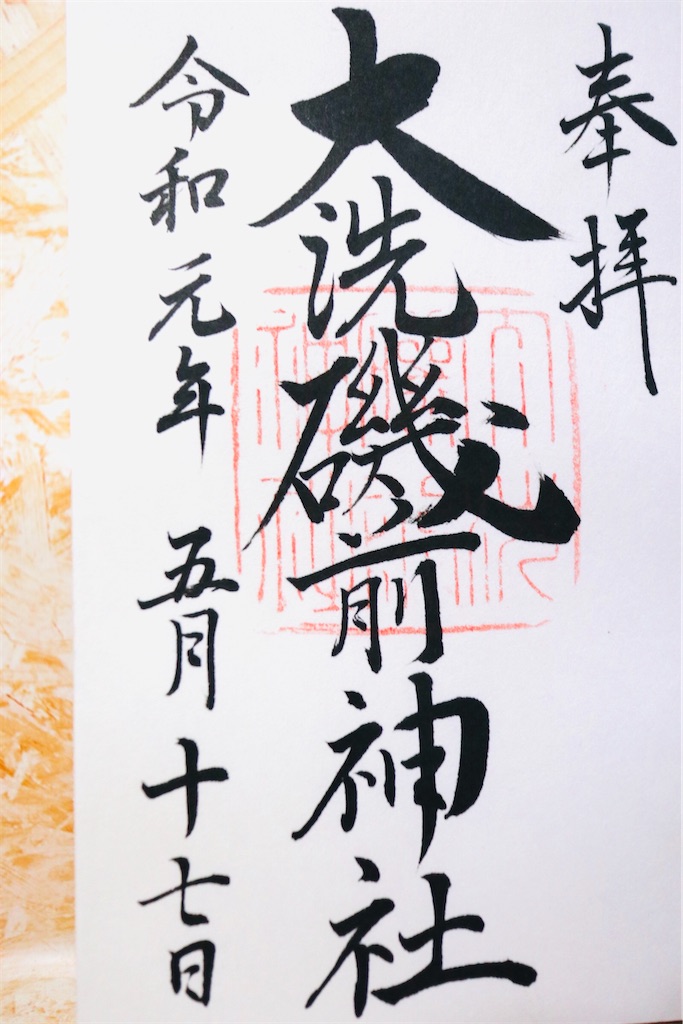 奉拝
大洗磯前神社
令和元年 五月十七日